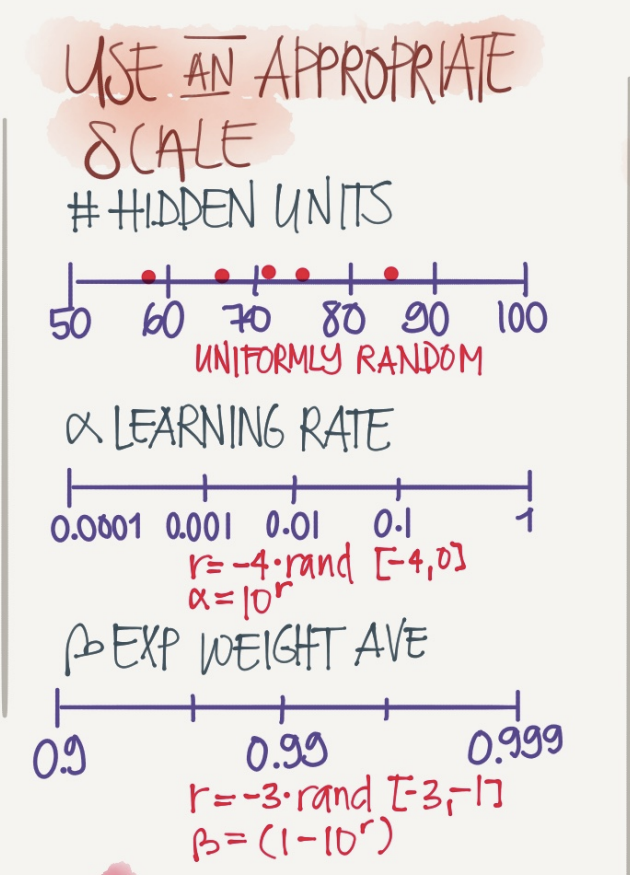 USE AN APPROPRIATE
SCALE
# HIDDEN UNITS
50 60 70 80 90 100
UNIFORMLY RANDOM
α LEARNING RATE
0.0001 0.001 0.01 0.1 1
r=-4·rand [-4,0]
α=10^r
β EXP WEIGHT AVE
0.9 0.99 0.999
r=-3·rand [-3,-1]
β=(1-10^r)